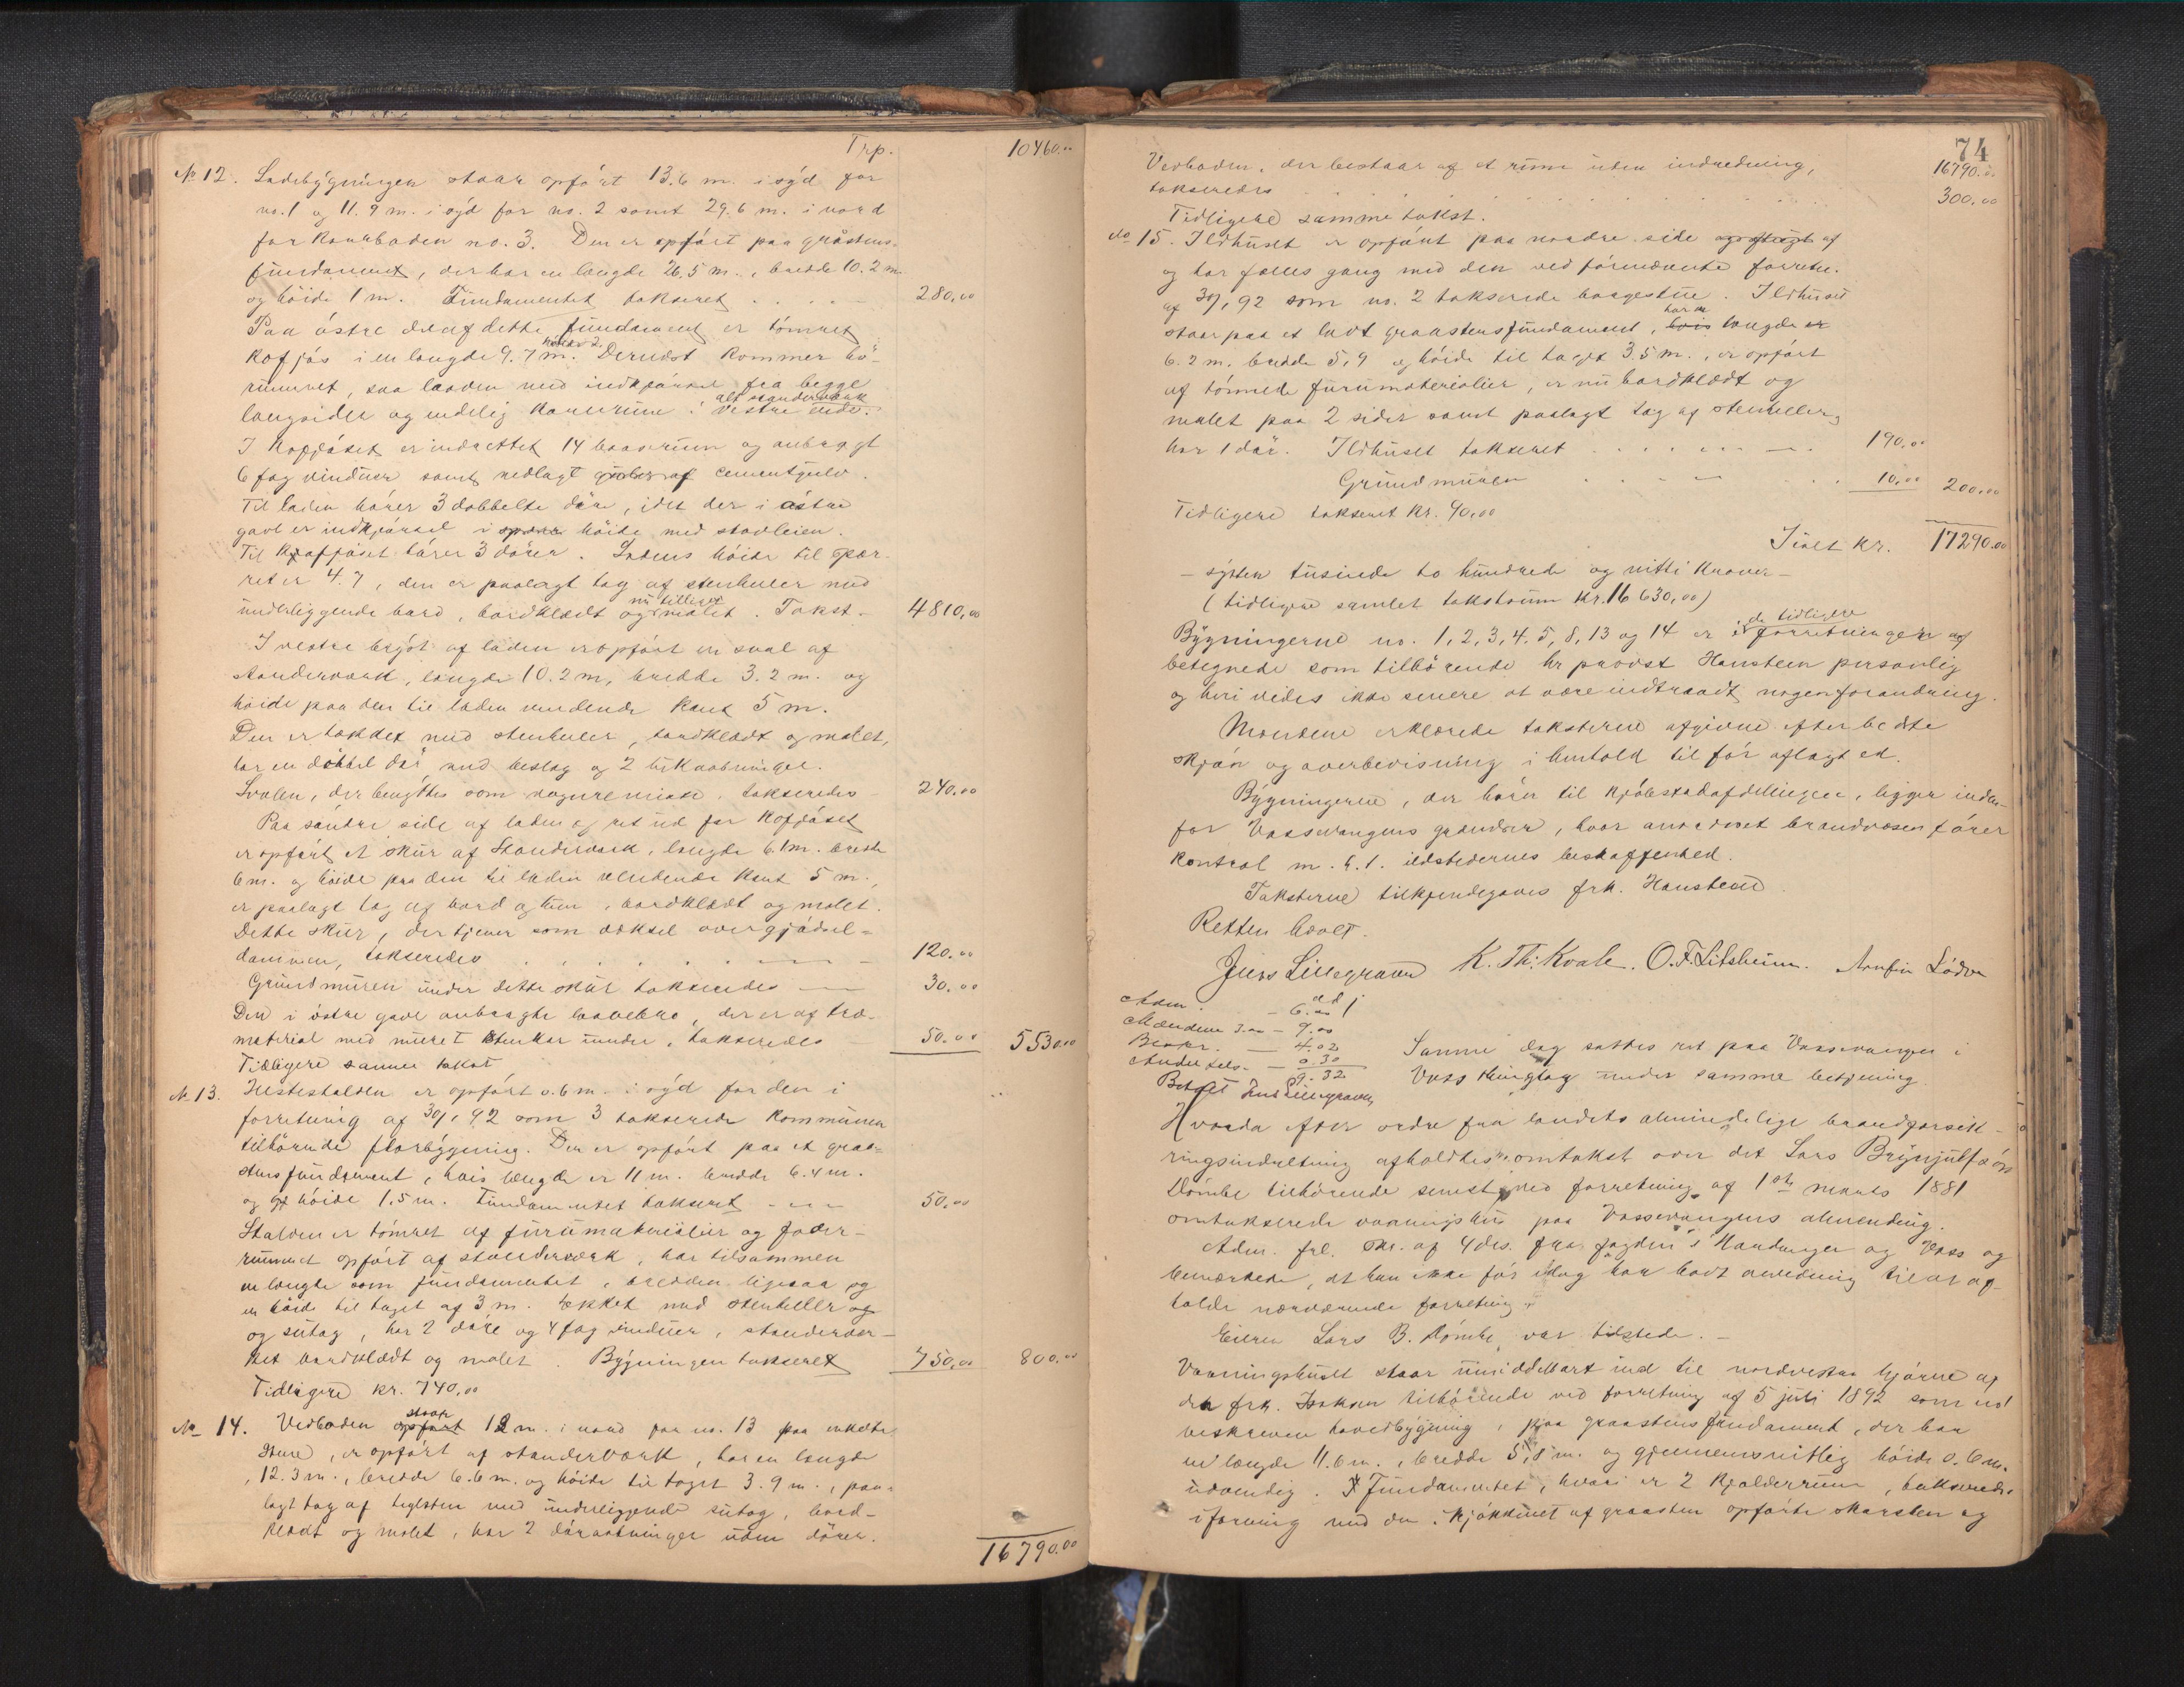 Trp. 10460.00
No 12. Ladebygningen staar opført 13.6 m. i syd for
no. 1 og 11.9 m. i syd for no. 2 samt 29.6 m. i nord
for no. 3. Den er opført paa gråstens-
fundament, der har en længde 26.5 m., bredde 10.2 m.
og höide 1 m. Fundamentet takseret 280.00
Paa østre del af dette fundament er tömret
kofjøs i en længde 9.7 m. Dernæst kommer hö-
rummet, saa laaden med indkjørsel fra begge
langsider og endelig i vestre ende. alt standerværk
I kofjøset er indrettet 14 baasrum og anbragt
6 fag vinduer samt nedlagt cementgulv.
Til laden hører 3 dobbelte döre, idet der i østre
gavl er indkjørsel i höide med stavleien.
Til kofjøset hører 3 dører. Ladens höide til spær-
ret er 4.7, den er paalagt tag af stenheller med
underliggende bord, bordklædt og nu tillige malet. Takst. 4810,00
I vestre af laden er opført en sval af
standerværk, længde 10.2 m, bredde 3.2 m. og
höide paa den til laden vendende kant 5 m.
Den er tækket med stenheller, bordklædt og malet,
har en döbbel dør med beslag og 2
Svalen, der benyttes som vognremisse, takseredes 240.00
Paa søndre side af laden og ret ud for kofjøset
er opført et skur af standerværk, længde 6.1 m. bredde
6 m. og höide paa den til laden vendende kant 5 m.,
er paalagt tag af bord og , bordklædt og malet.
Dette skur, der tjener som over gjødsel-
dammen, takseredes 120.00
Grundmuren under dette skur takseredes 30.00
Den i østre gavl anbragte laavebro, der er af træ-
material med muret stenkar under, takseredes 50.00 5530.00
Tidligere samme takst
No 13. Hestestalden er opført 0.6 m. i syd for den i
forretning af 30/1 92 som 3 takserede kommunen
tilhørende florbygning. Den er opført paa et graa-
stensfundament, hvis længde er 11 m. bredde 6.4 m.
og höide 1.5 m. Fundamentet takseret 50.00
Stalden er tömret af furumaterialier og foder-
rummet opført af standerværk, har tilsammen
en længde som fundamentet, bredden ligesaa og
en höide til taget af 3 m. tækket med stenheller og
og sutag, har 2 döre og 4 fag vinduer, standervær-
ket bordklædt og malet. Bygningen takseret 750,00 800.00
Tidligere kr. 740,00
No 14. Vedboden opført staar 12 m. i nord for no. 13 paa enkelte
stene, er opført af standerværk, har en længde
12.3 m., bredde 6.6 m. og höide til taget 3.9 m., paa-
lagt tag af teglsten med underliggende sutag, bord-
klædt og malet, har 2 døraabninger uden dörer.
16790.00
74
Vedboden, der bestaar af et rum uden indredning, 16790.00
takseredes 300.00
Tidligere samme takst.
No 15. Ildhuset er opført paa nordre side af
og har fælles gang med den ved förnævnte forretn.
af 30/1 92 som no. 2 takserede borgestue. Ildhuset
staar paa et lavt graastensfundament, hvis har en længde er
6.2 m. bredde 5,9 og höide til taget 3.5 m., er opført
af tömrede furumaterialier, er nu bordklædt og
malet paa 2 sider samt paalagt tag af stenheller,
har 1 dør. Ildhuset takseret 190.00
Grundmuren 10.00 200.00
Tidligere takseret kr. 90,00
Ialt kr. 17290.00
– sytten tusinde to hundrede og nitti kroner –
(tidligere samlet takstsum kr. 16 630,00)
Bygningerne no. 1, 2, 3, 4, 5, 8, 13 og 14 er i de tidligere forretninger
betegnede som tilhörende hr provst Hansteen personlig
og heri vides ikke senere at være indtraadt nogen forandring.
Mændene erklærede taksterne afgivne efter bedste
skjøn og overbevisning i henhold til før aflagt ed.
Bygningerne, der hører til kjøbstadafdelingen, ligger inden-
for Vossevangens grændser, hvor brandvæsen fører
kontrol m. h. t. ildstedernes beskaffenhed.
Taksterne tilkjendegaves frk. Hansteen.
Retten hævet.
Jens Lillegraven K. Th. Kvale. O. F. Litsheim. Arnfin
Adm. – 6.00
Mændene 3.00 – 9.00
– 4.02
– 0.30
9.32
Betalt Jens Lillegraven
Samme dag sattes ret paa Vossevangen i
Voss thinglag under samme betjening
Hvorda efter ordre fra landets almindelige brandforsik-
ringsindretning afholdtes omtakst over det Lars Brynjulfsön
Dömbe tilhörende senest ved forretning af 1ste marts 1881
omtakserede vaaningshus paa Vossevangens almending.
Adm. frl. skr. af 4 ds. fra fogden i Hardanger og Voss og
bemærkede, at han ikke før idag har havt anledning til at af-
holde nærværende forretning.
Eieren Lars B. Dömbe var tilstede. –
Vaaningshuset staar umiddelbart ind til nordvestre hjørne af
den frk. tilhörende ved forretning af 5 juli 1892 som no 1
beskreven hovedbygning, paa graastens fundament, der har
en længde 11.6 m., bredde 5,8 m. og gjennemsnitlig höide 0.6 m.
udvendig. Fundamentet, hvori er 2 kjælderrum, takseredes
i forening med den i kjøkkenet af graasten opførte skorsten og